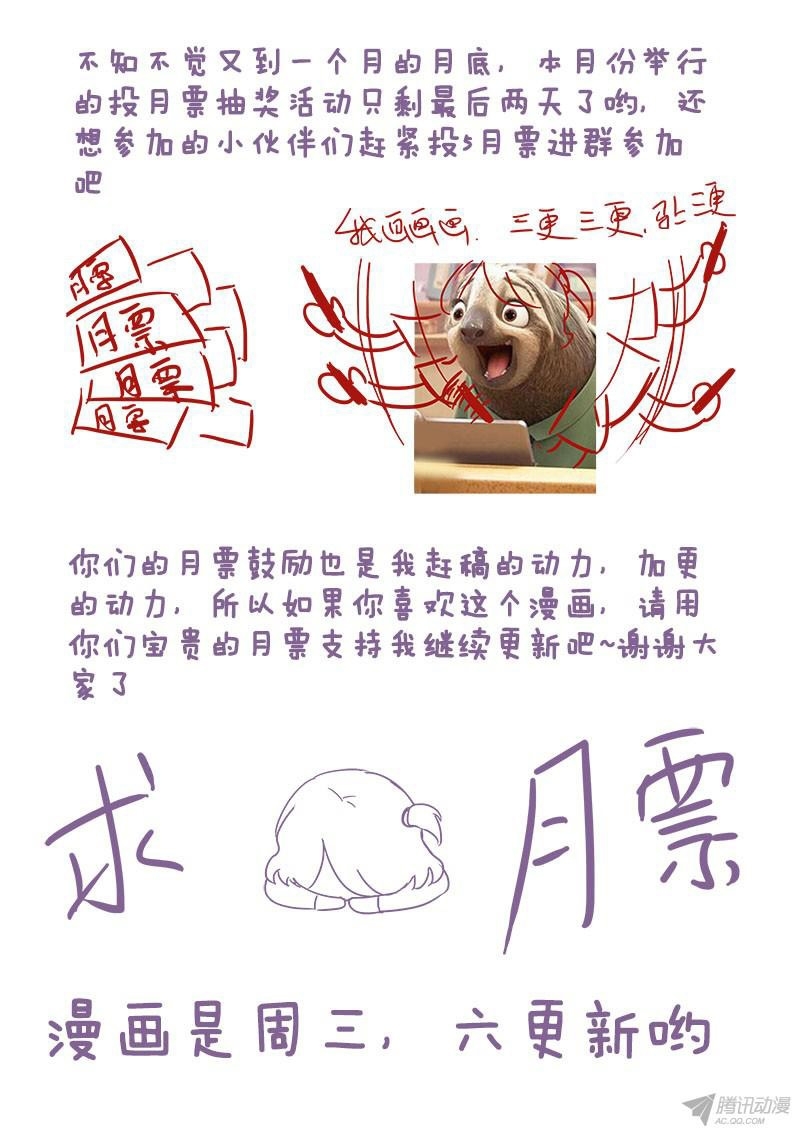 不知不觉又到一个月的月底，本月份举行
的投月票抽奖活动只剩最后两天了哟，还
想参加的小伙伴们赶紧投5月票进群参加
吧
我画画画. 三更三更,马上三更
月票
月票
月票
月票
你们的月票鼓励也是我赶稿的动力，加更
的动力，所以如果你喜欢这个漫画，请用
你们宝贵的月票支持我继续更新吧~谢谢大
家了
求 月票
漫画是周三，六更新哟
腾讯动漫
AC.QQ.COM